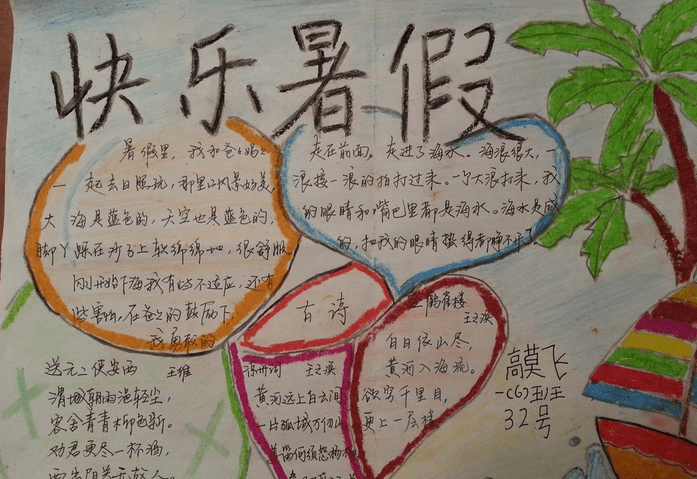 快乐暑假
暑假里，我和爸爸妈妈
一起去日照玩，那里的风景好美，
大海是蓝色的，天空也是蓝色的，
脚丫踩在沙子上软绵绵地，很舒服
刚开始下海我有些不适应，还有
些害怕，在爸爸的鼓励下，
我勇敢的
走在前面，走进了海水。海浪很大，一
浪接一浪的拍打过来。一个大浪打来，我
的眼睛和嘴巴里都是海水。海水是咸
的，把我的眼睛蛰得都睁不开了。
古诗
登鹳雀楼
王之涣
白日依山尽，
黄河入海流。
欲穷千里目，
更上一层楼
送元二使安西 王维
渭城朝雨浥轻尘，
客舍青青柳色新。
劝君更尽一杯酒，
西出阳关无故人。
凉州词 王之涣
黄河远上白云间
一片孤城万仞山
羌笛何须怨杨柳
高莫飞
一(6)班
32号